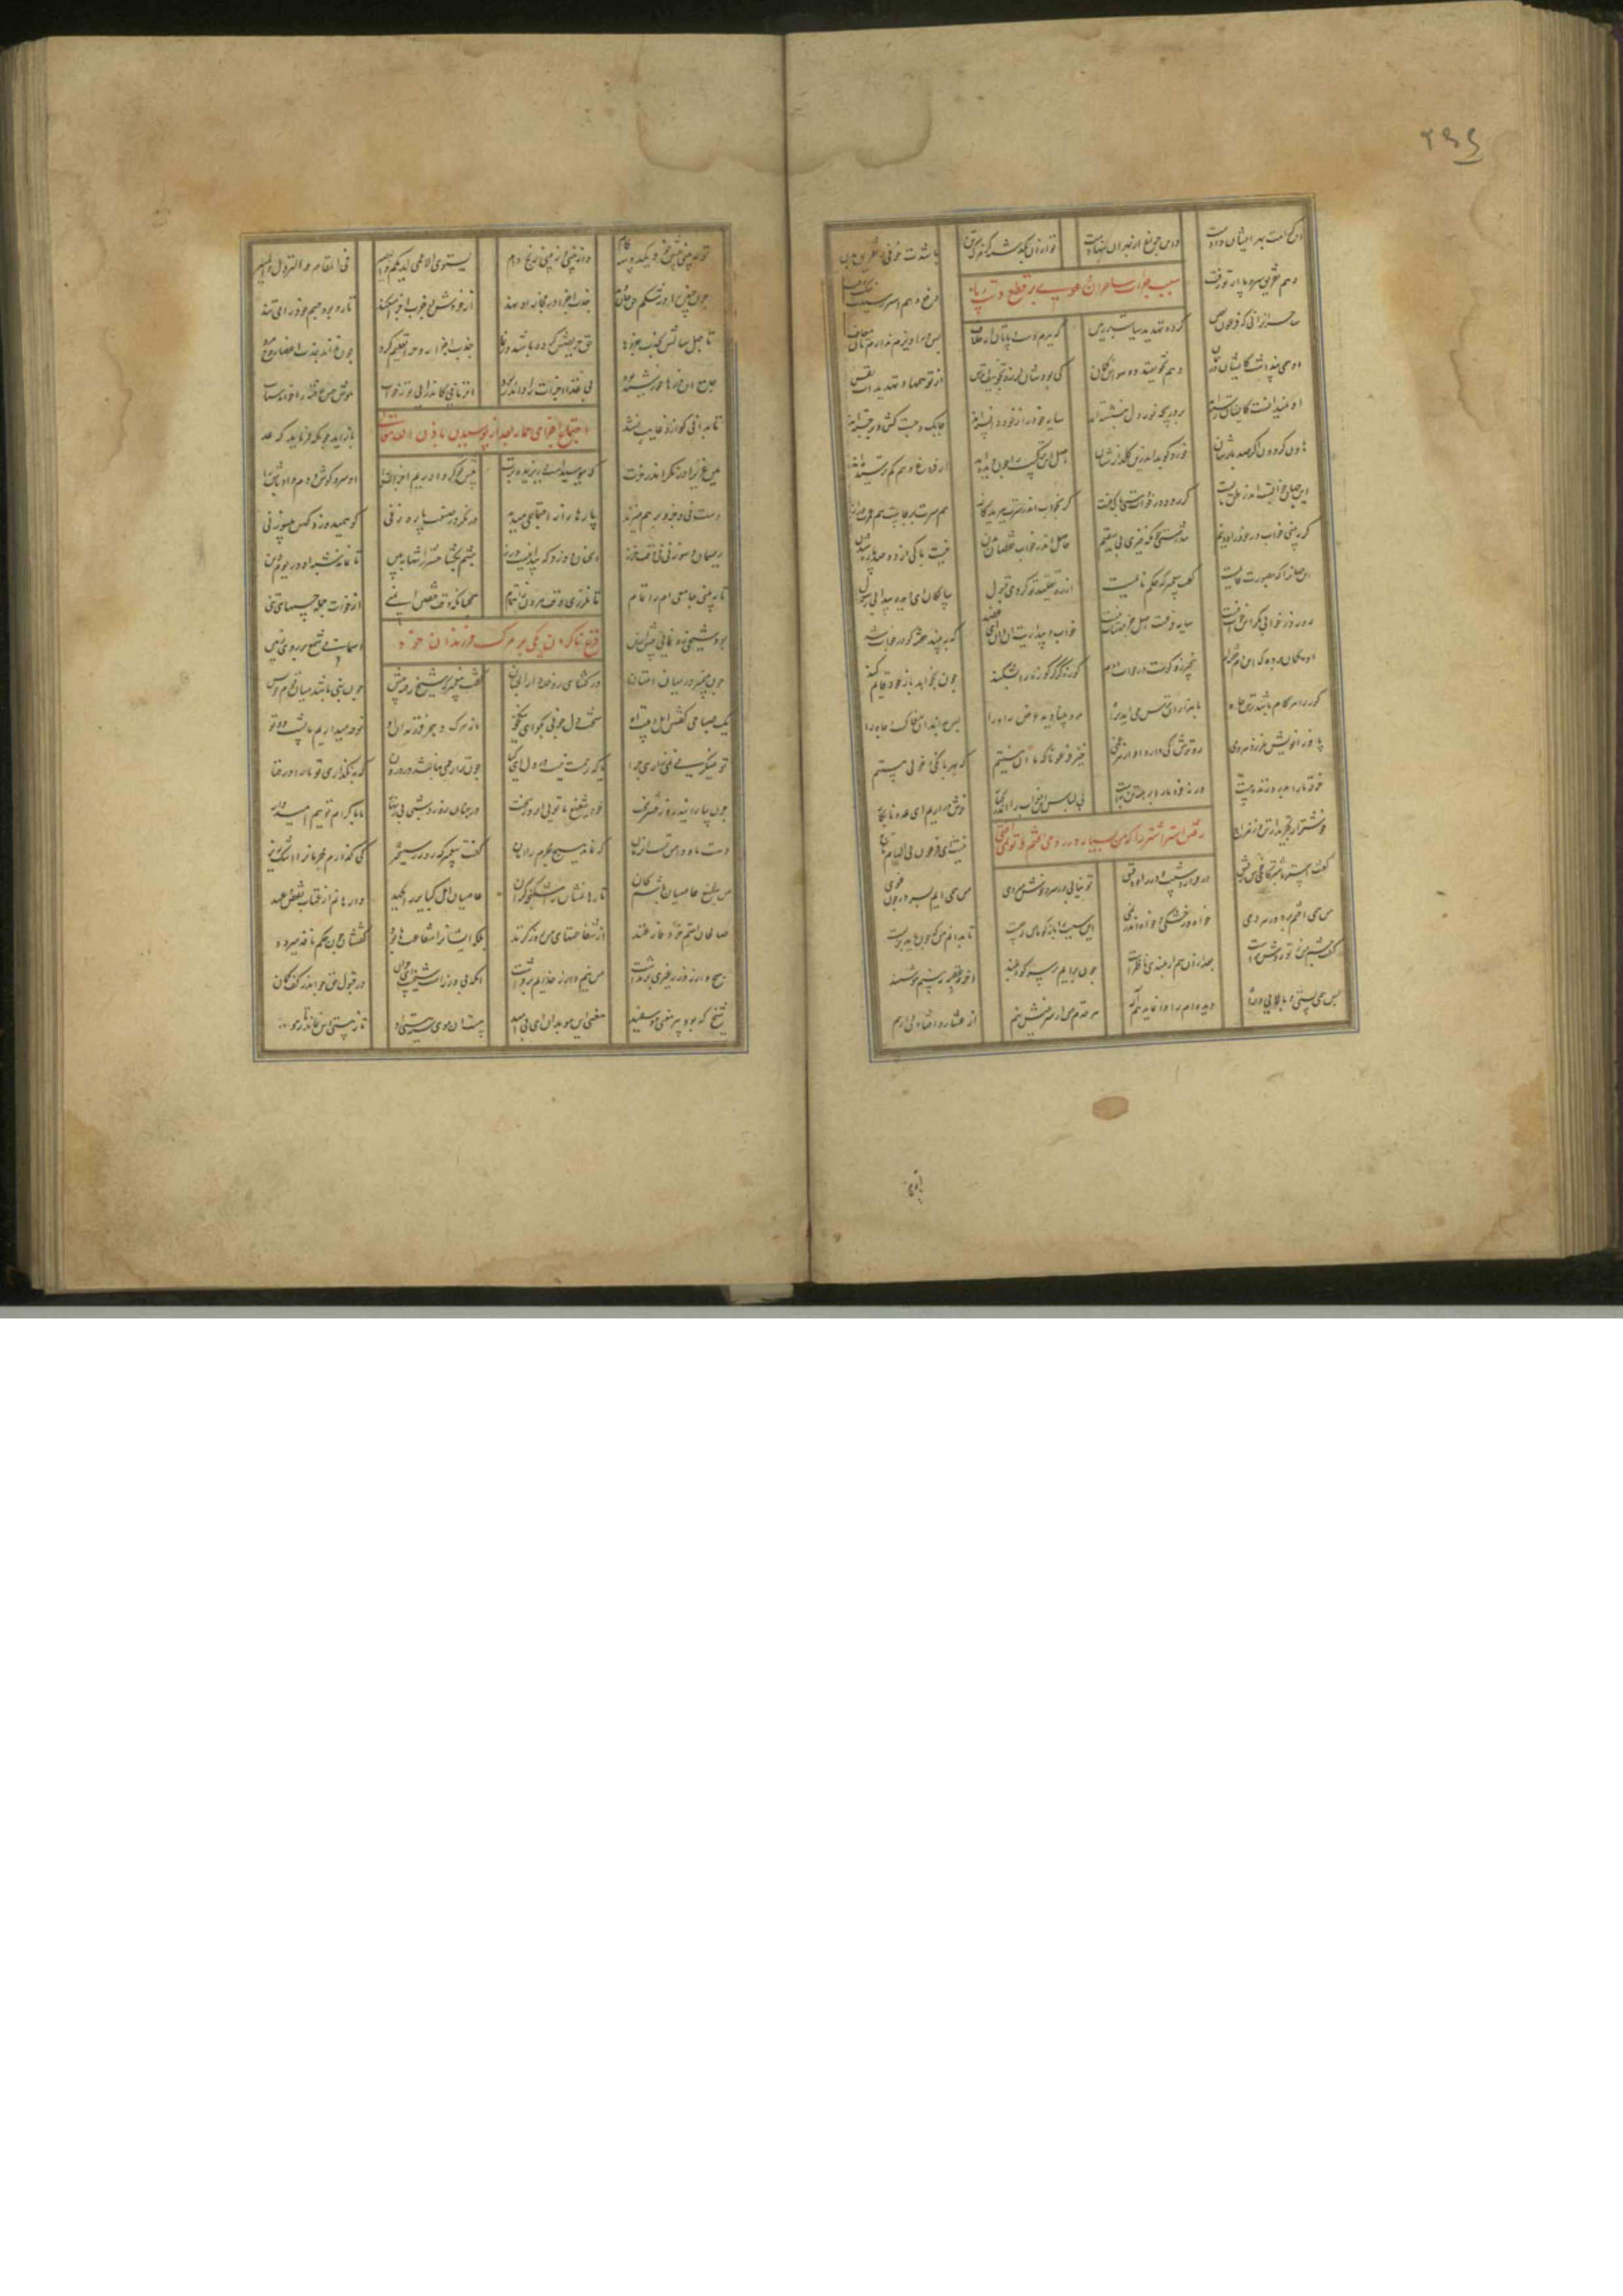 این کرامت بهر ایشان دادمت واین چراغ از بهر آن بنهادمت تو از آن بگذشته کز مرگ تن باشدت خوفی ز تفریق بدن
وهم تفریق سر و پا از تو رفت دفع وهم اسپر رسیدت
سبب جرات ساحران فرعون بر قطع دست و پا
ساحران را نی که فرعون لعین کرده تهدید سیاست بر زمین که ببرم دست و پاتان از خلاف پس در آویزم ندارم تان معاف
او همی پنداشت کایشان در همان وهم و تخویفند و وسواس و گمان کی بودشان لرزه و تخویف و ترس از توهمها و تهدیدات نفس
او نمیدانست کایشان رسته اند بر دریچه نور دل بنشسته اند سایه خود را ز خود دانسته اند چابک و چست و کش و برجسته اند
هاون گردون اگر صد بارشان خورد کوبد اندرین گلزارشان اصل این ترکیب را چون دیده اند از فروغ وهم کم ترسیده اند
این جهان خوابست اندر ظن مایست گر رود در خواب دستی باک نیست گر بخواب اندر سرت ببرید گاز هم سرت بر جاست هم عمرت دراز
گر ببینی خواب در خود را دو نیم تن درستی چونکه خیزی نی سقیم حاصل اندر خواب نقصان بدن نیست باکی از دو صد پاره شدن
این جهان را که بصورت قایمست گفت پیغمبر که حلم نایمست از ره تقلید تو کردی قبول سالکان این دیده پیدا بی رسول
روز در خوابی مگو کین خواب نیست سایه فرعست اصل جز مهتاب نیست خواب و بیداریت آن دان ای عضد که ببیند خفته کو در خواب شد
او گمان برده که این دم خفته ام بیخبر زان کوست در خواب دوم کوزه گر گر کوزه را بشکند چون بخواهد باز خود قایم کند
کور را هر گام باشد ترس چاه با هزاران ترس می آید براه مرد بینا دید عرض راه را پس بداند او مغاک و چاه را
پا و زانویش نلرزد هر دمی رو ترش کی دارد او از هر غمی خیز فرعونا که ما آن نیستیم که بهر بانگی و غولی بیستیم
خرقه ما را بدر دوزنده هست ورنه خود ما را برهنه تن بهست بی لباس این خوب را اندر کنار خوش در آریم ای عدو نابکار
خوشتر از تجرید از تن وز مزاج نیست ای فرعون بی الهام
گفتن استر اشتر را که من بسیار در رو می افتم و تو نمی افتی
گفت استر با شتر کای خوش رفیق در فراز و شیب و در راه دقیق تو نیایی در سر و خوش میروی من همی آیم بسر در چون غوی
من همی افتم برو در هر دمی خواه در خشکی و خواه اندر نمی این سبب را باز گو با من که چیست تا بدانم من که چون باید بزیست
گفت چشم من ز تو روشنترست بعد از آن هم از بلندی ناظرست چون برآیم بر سر کوه بلند آخر عقبه ببینم هوشمند
پس همه پستی و بالایی راه دیده ام را وا نماید هم اله هر قدم من از سر بینش نهم از عثار و اوفتادن وا رهم
تو ببینی پیش خود یک دو سه گام دانه بینی و نبینی رنج دام یستوی الاعمی لدیکم والبصیر فی المقام والنزول والمسیر
چون جنین را در شکم حق جان دهد جذب اجزا در مزاج او نهد از خورش او جذب اجزا میکند تار و پود جسم خود را می تند
تا چهل سالش بجذب جزوها حق حریصش کرده باشد در نما جذب اجزا روح را تعلیم کرد چون نداند جذب اجزا
جامع این ذره ها خورشید بود بی غذا اجزات را داند ربود آن زمانی کاندر آیی تو ز خواب هوش و حس رفته را خواند شتاب
تا بدانی کو ازو غایب نشد باز آید چونکه فرماید که عد
اجتماع اجزای حمار بعد از پوسیدن باذن الله تعالی
هین عزیرا در نگر اندر خرت که بپوسیدست و ریزیده برت پیش تو گرد آوریم اجزاش را آن سر و گوش و دم و آن پاش را
دست نی و جزو بر هم میزند پارها را اجتماعی میدهد در نگر در صنعت پاره زنی کو همی دوزد کهن بی سوزنی
ریسمان و سوزنی نی وقت خرز آنچنان دوزد که پیدا نیست درز چشم بگشا حشر را پیدا ببین تا نماند شبهه ات در یوم دین
تا ببینی جامعی ام را تمام تا نلرزی وقت مردن ز اهتمام همچنانکه وقت خفتن ایمنی از فوات جمله حسهای تنی
جزع ناکردن یکی بر مرگ فرزندان خود
بود شیخی رهنمایی پیش ازین آسمانی شمع بر روی زمین
چون پیمبر در میان امتان در گشای روضه دار الجنان گفت پیغمبر که شیخ رفته پیش چون نبی باشد میان قوم خویش
یک صباحی گفتش اهل بیت او سخت دل چونی بگو ای نیکخو ما ز مرگ و هجر فرزندان تو نوحه میداریم با پشت دوتو
تو نمیگریی نمی زاری چرا یا که رحمت نیست در دل ای کیا چون ترا رحمی نباشد در درون
چون بیارایند روز حشر تخت خود شفیع ما تویی آن روز سخت در چنان روز و شب بی زینهار ما باکرام توییم امیدوار
دست ما و دامن تست آن زمان که نماند هیچ مجرم را امان گفت پیغمبر که روز رستخیز کی گذارم مجرمان را اشک ریز
من شفیع عاصیان باشم بجان تا رهانمشان ز اشکنجه گران عاصیان اهل کبایر را بجهد وا رهانم از عتاب نقض عهد
صالحان امتم خود فارغند از شفاعتهای من روز گزند بلکه ایشان را شفاعتها بود گفتشان چون حکم نافذ میرود
هیچ وازر وزر غیری برنداشت من نیم وازر خدایم برفراشت آنکه بی وزرست شیخست ای جوان در قبول حق چو اندر کف کمان
شیخ که بود پیر یعنی مو سفید معنی این مو بدان ای بی امید هست آن موی سیه هستی او تا ز هستی اش نماند تار مو